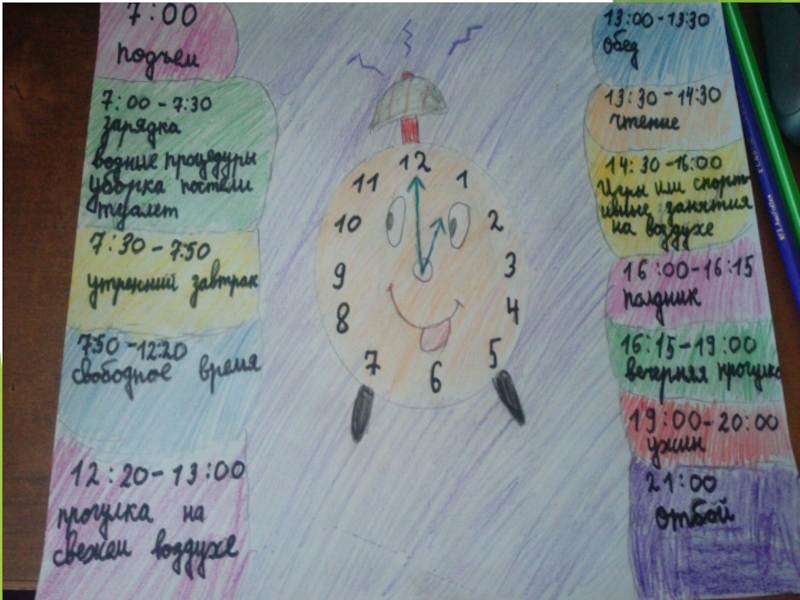 7:00
подъем
7:00-7:30
зарядка
водные процедуры
уборка постели
туалет
7:30-7:50
утренний завтрак
7:50-12:20
свободное время
12:20-13:00
прогулка на
свежем воздухе
12
1
2
3
4
5
6
7
8
9
10
11
13:00-13:30
обед
13:30-14:30
чтение
14:30-16:00
Игры или спорт-
ивные занятия
на воздухе
16:00-16:15
полдник
16:15-19:00
вечерняя прогулка
19:00-20:00
ужин
21:00
отбой